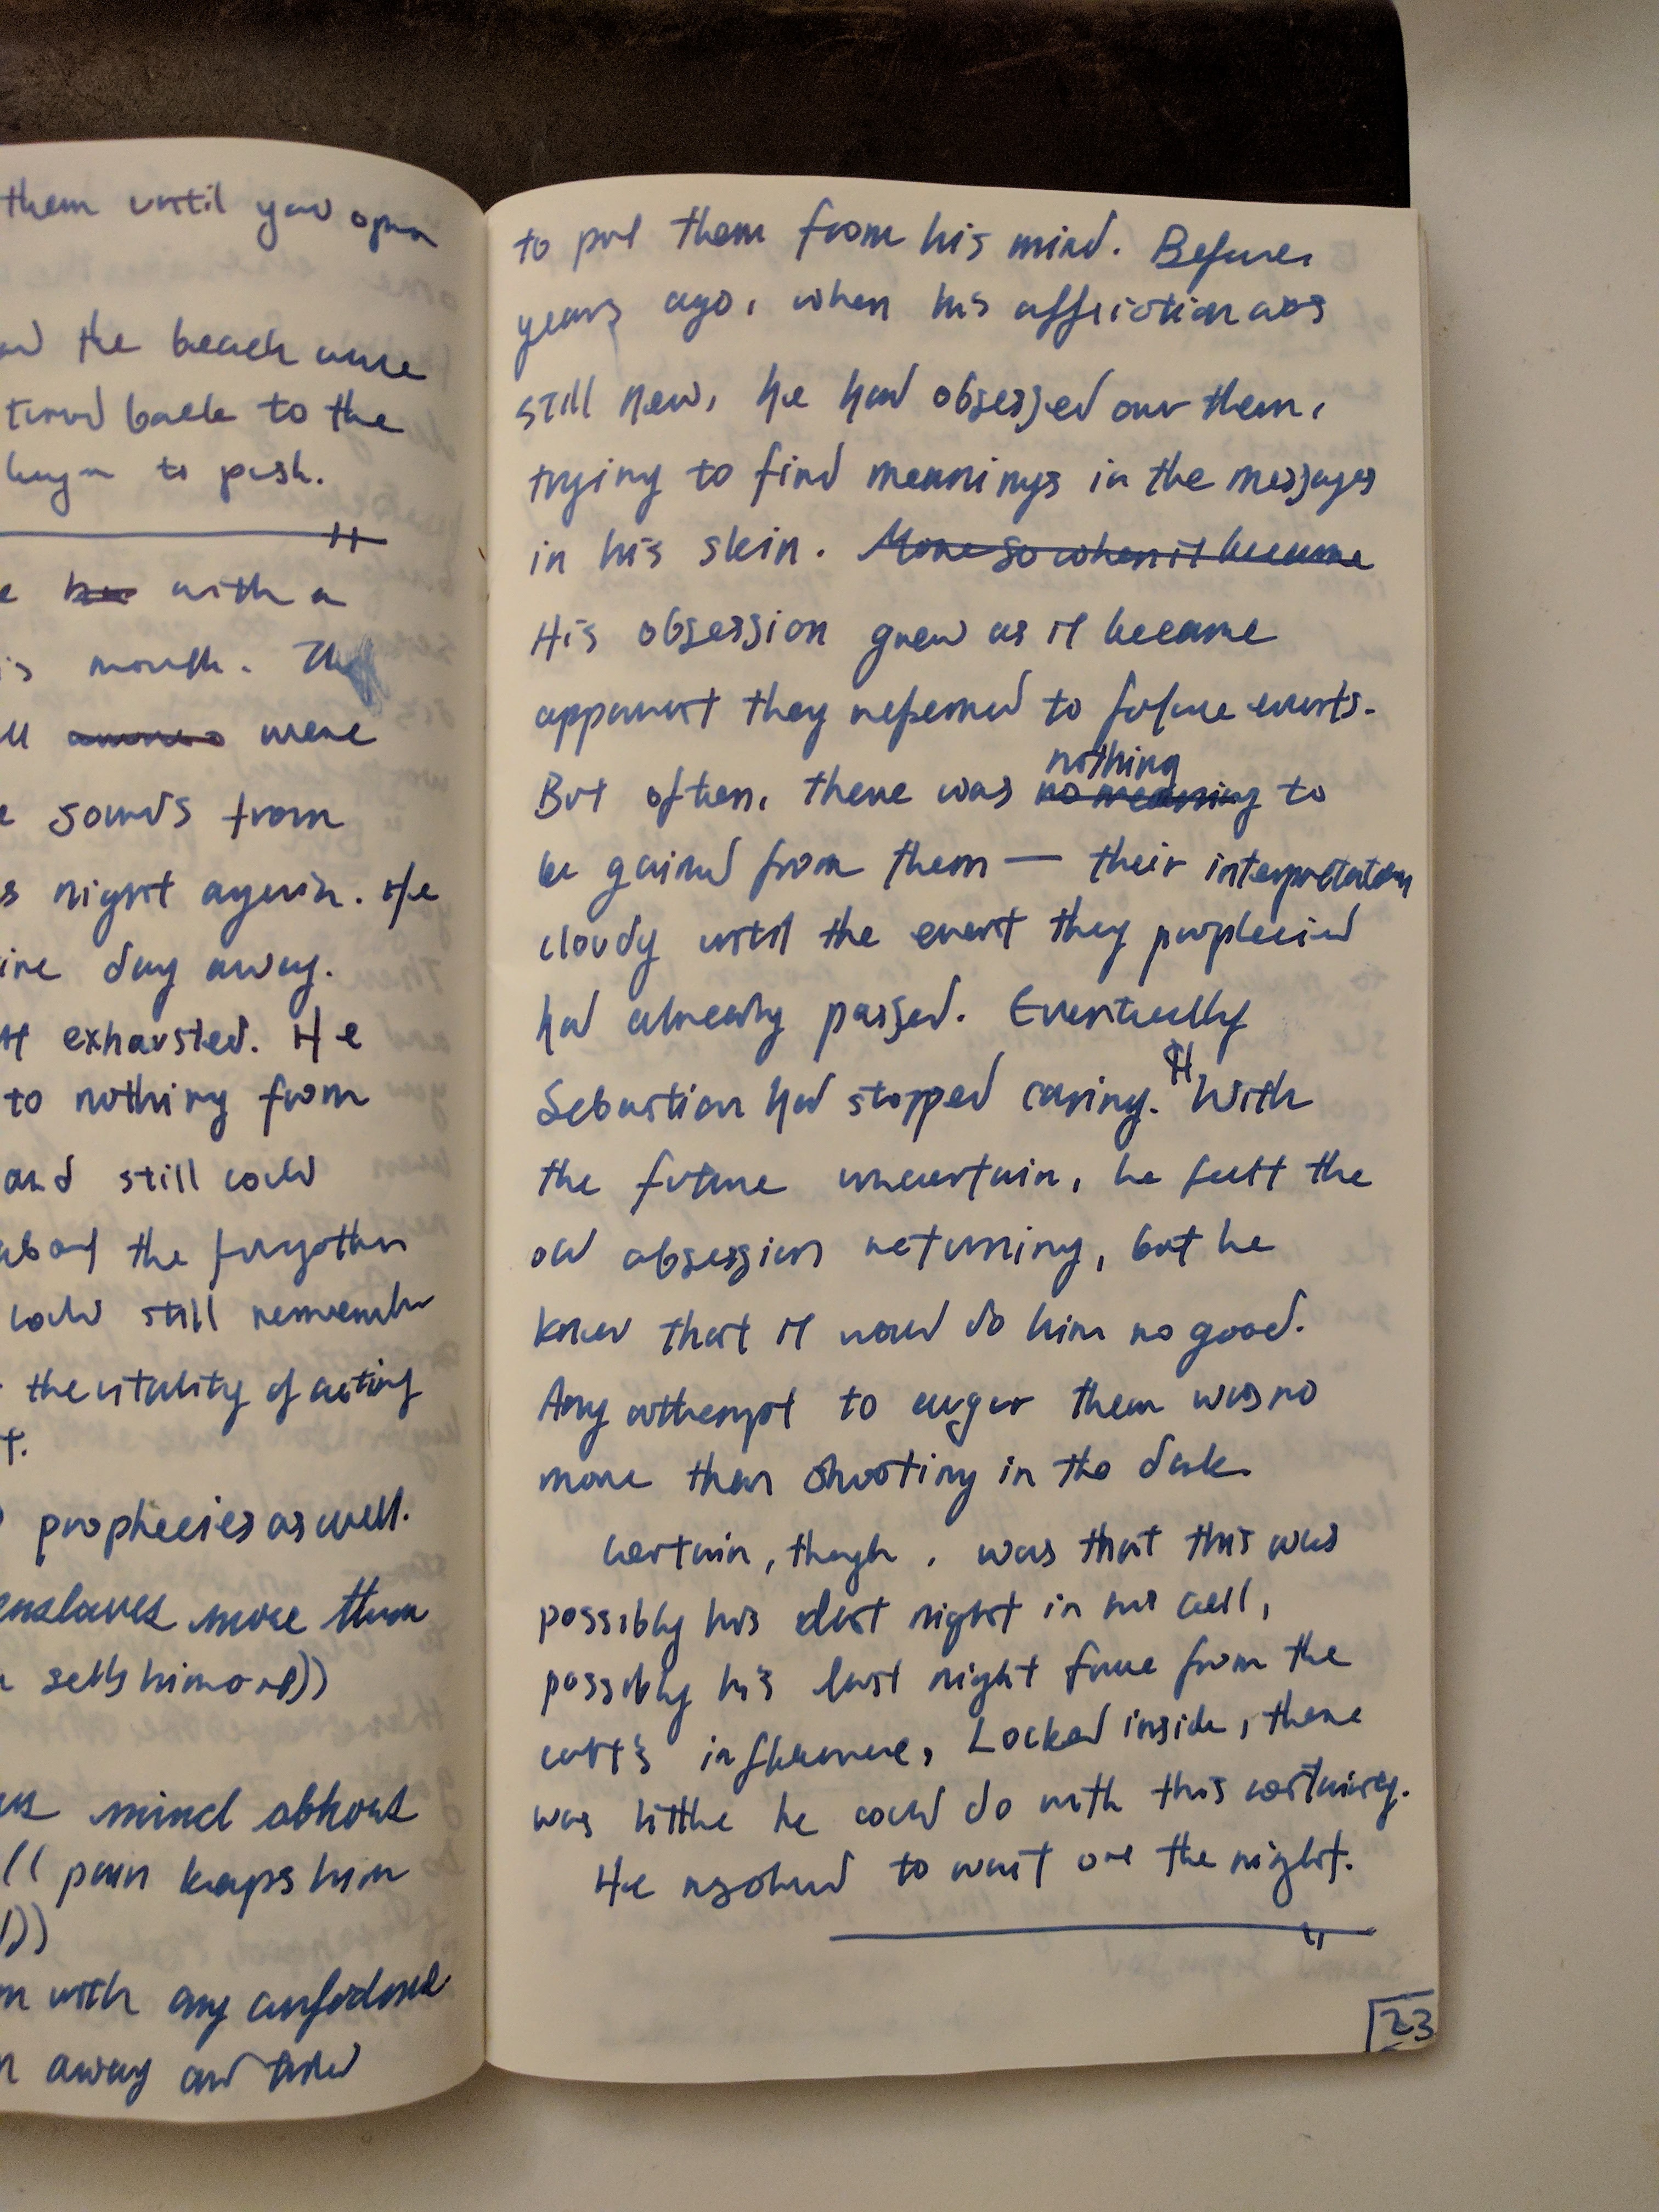 them until you open
the beach were
turned back to the
began to push.
with a
mouth. The
were
sounds from
night again. He
day away.
exhausted. He
to nothing from
and still could
about the forgotten
could still remember
the vitality of acting
prophecies as well.
enslaves more than
sells himor))
mind about
(( pain keeps him
))
with any
away and tried
to put them from his mind. Before,
years ago, when his affliction was
still new, he had obsessed over them,
trying to find meanings in the messages
in his skin. More so when it became
His obsession grew as it became
apparent they referred to future events.
But often, there was no meaning nothing to
be gained from them — their interpretation
cloudy until the event they prophecied
had already passed. Eventually
Sebastian had stopped caring. With
the future uncertain, he felt the
old obsession returning, but he
knew that it would do him no good.
Any attempt to augur them was no
more than shooting in the dark.
Certain, though, was that this was
possibly his last night in his cell,
possibly his last night free from the
cult's influence, Locked inside, there
was little he could do with this certainty.
He resolved to wait out the night.
23